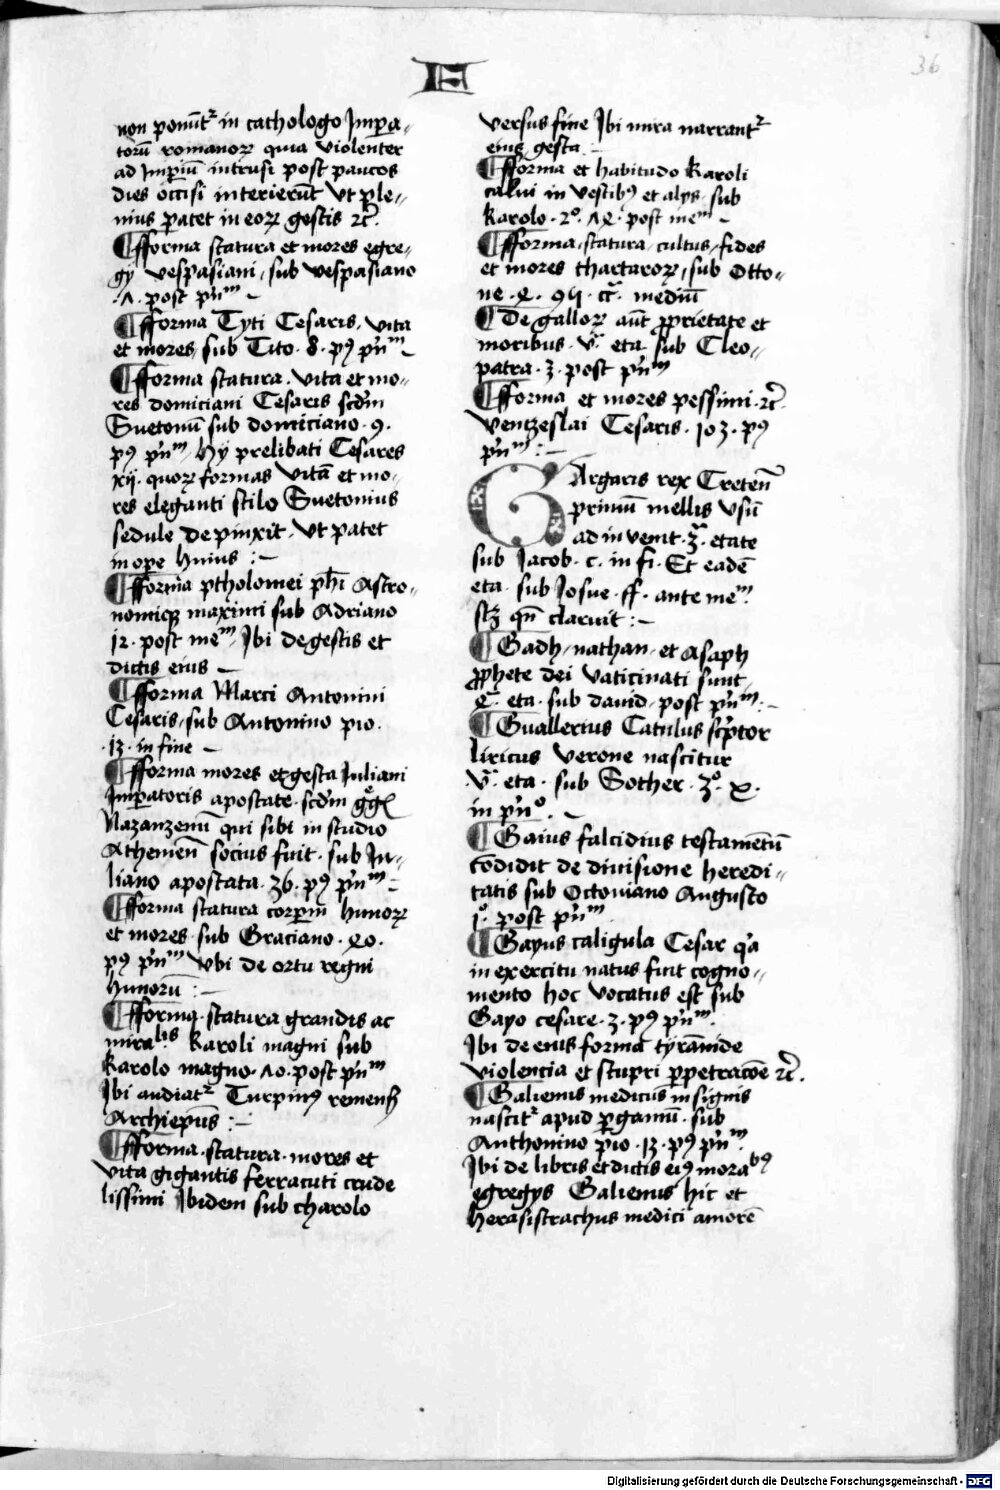 F
36
non ponūtᷣ in cathologo Impa-
torū romanoꝝ quia violenter
ad Imꝑiū intrusi post paucos
dies occisi interierūt vt ple-
nius patet in eoꝝ gestis ꝛcͣ.
¶ fforma statura et mores egre-
gij vespasiani, sub vespasiano
.ʌ. post pn̄m –
¶ fforma Tyti Cesaris, vita
et mores, sub Tito. 8. pꝰ pn̄m –
¶ fforma statura. vita et mo-
res domiciani Cesaris scd̄m
Suetoniū sub domiciano .9.
pꝰ pn̄m, hy prelibati Cesares
xij. quoꝝ formas vitā et mo-
res eleganti stilo Suetonius
sedule depinxit. vt patet
in oꝑe huius :–
¶ fforma ptholomei ph̄i Astro-
nomiqꝫ maximi sub Adriano
12. post mem, Ibi de gestis et
dictis eius –
¶ fforma Marci Antonini
Cesaris, sub Antonino pio.
.13. in fine –
¶ fforma mores et gesta Juliani
Imꝑatoris apostate. scd̄m gͦgͦꝭ
Nazanzenū qui sibi in studio
Atheniēn socius fuit. sub Ju-
liano apostata. 36. pꝰ pn̄m –
¶ fforma statura corꝑm hunoꝝ
et mores sub Graciano .ꝝ0.
pꝰ pn̄m vbi de ortu regni
hunorū :–
¶ fforma. statura grandis ac
miralis Karoli magni sub
Karolo magno. ʌ0. post pn̄m
Ibi audiatᷣ Turpinꝰ remens̄
Archiepūs :–
¶ fforma. statura. mores et
vita gigantis ferracuti crude
lissimi Ibidem sub charolo
versus fine Ibi mira narrantᷣ
eius gesta –
¶ fforma et habitudo Karoli
calui in vestibꝰ et alys. sub
Karolo. 2o. ʌꝝ. post mem –
¶ fforma. statura, cultus, fides
et mores thartaroꝝ, sub Otto-
ne .ꝝ. 94. cͣ. mediū
¶ De galloꝝ aūt ꝓprietate et
moribus. v̄. eta. sub Cleo-
patra. 3. post pn̄m
¶ fforma et mores pessimi ꝛcͣ.
ventzeslai Cesaris. 103. pꝰ
pn̄m :–
GArgaris rex Cretēn
primū mellis vsū
ad invenit. 3ͣ. etate
sub Jacob. c. in fi. Et eadē
eta. sub Josue. ff. ante mem.
sꝫ qn̄ claruit :–
¶ Gadh, nathan, et Asaph
ꝓphete dei vaticinati sunt
ꝝͣ. eta. sub dauid, post pn̄m :–
¶ Guallerius Catulus scͥptor
liricus verone nascitur
.v̄. eta. sub Sother. 3o. x.
in pn̄o. –
¶ Gaius falcidius testamētū
cōdidit de diuisione heredi-
tatis sub Octoviano Augusto
1o. post pn̄m.
¶ Gayus caligula Cesar qͥa
in exercitu natus fuit cogno-
mento hoc vocatus est sub
Gayo cesare. 3. pꝰ pn̄m.
Ibi de eius forma tyrānide
violencia et stupri ꝑpetracōe ꝛcͣ.
¶ Galienus medicus insignis
nascitᷣ apud ꝑgamū. sub
Anthonino pio. 13. pꝰ pn̄m.
Ibi de libris et dictis eiꝰ morabꝰ
egregys Galienus hic et
herasistrachus medici amorē
Digitalisierung gefördert durch die Deutsche Forschungsgemeinschaft - DFG